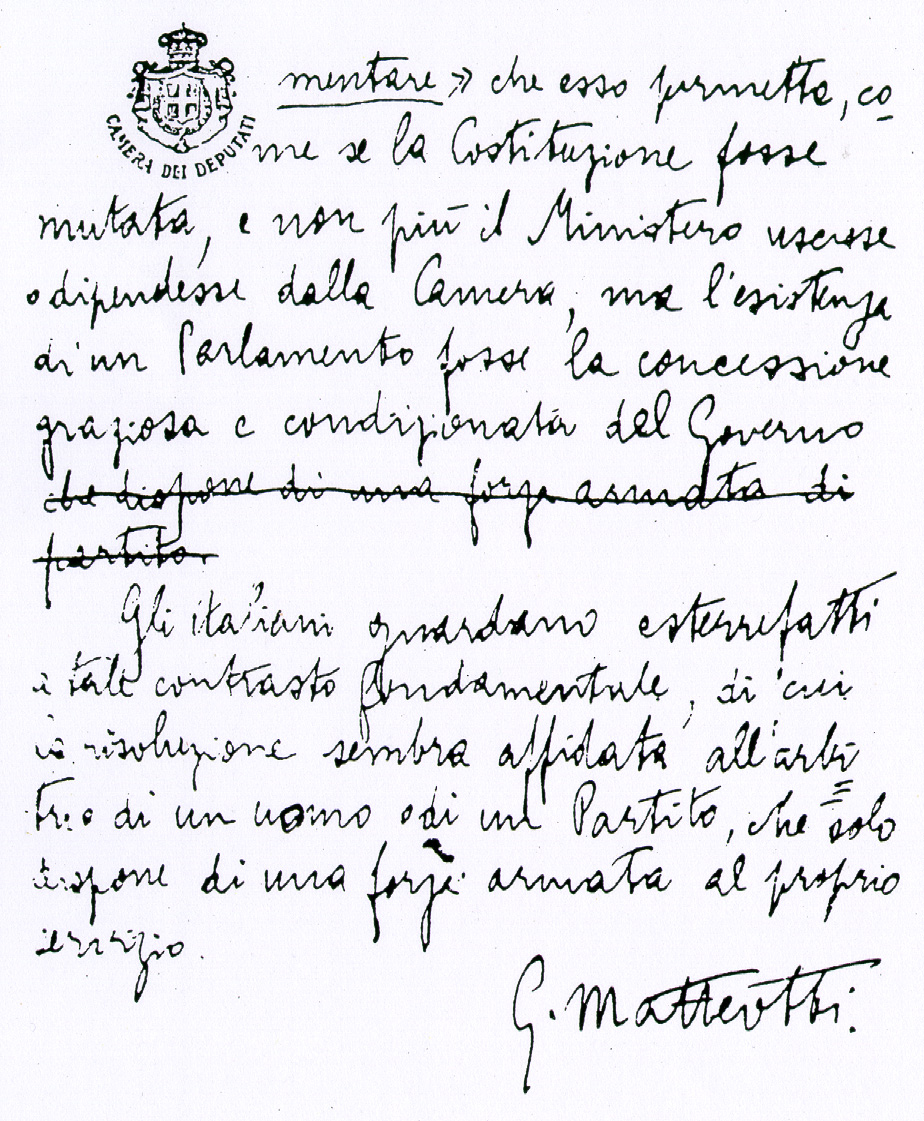 CAMERA DEI DEPUTATI
mentare » che esso permetta, co
me se la Costituzione fosse
mutata, e non più il Ministero uscisse
o dipendesse dalla Camera, ma l'esistenza
di un Parlamento fosse la concessione
graziosa e condizionata del Governo
che dispone di una forza armata di
partito.
Gli italiani guardano esterrefatti
a tale contrasto fondamentale, di cui
la risoluzione sembra affidata all'arbi
trio di un uomo o di un Partito, che solo
dispone di una forza armata al proprio
servizio.
G. Matteotti.